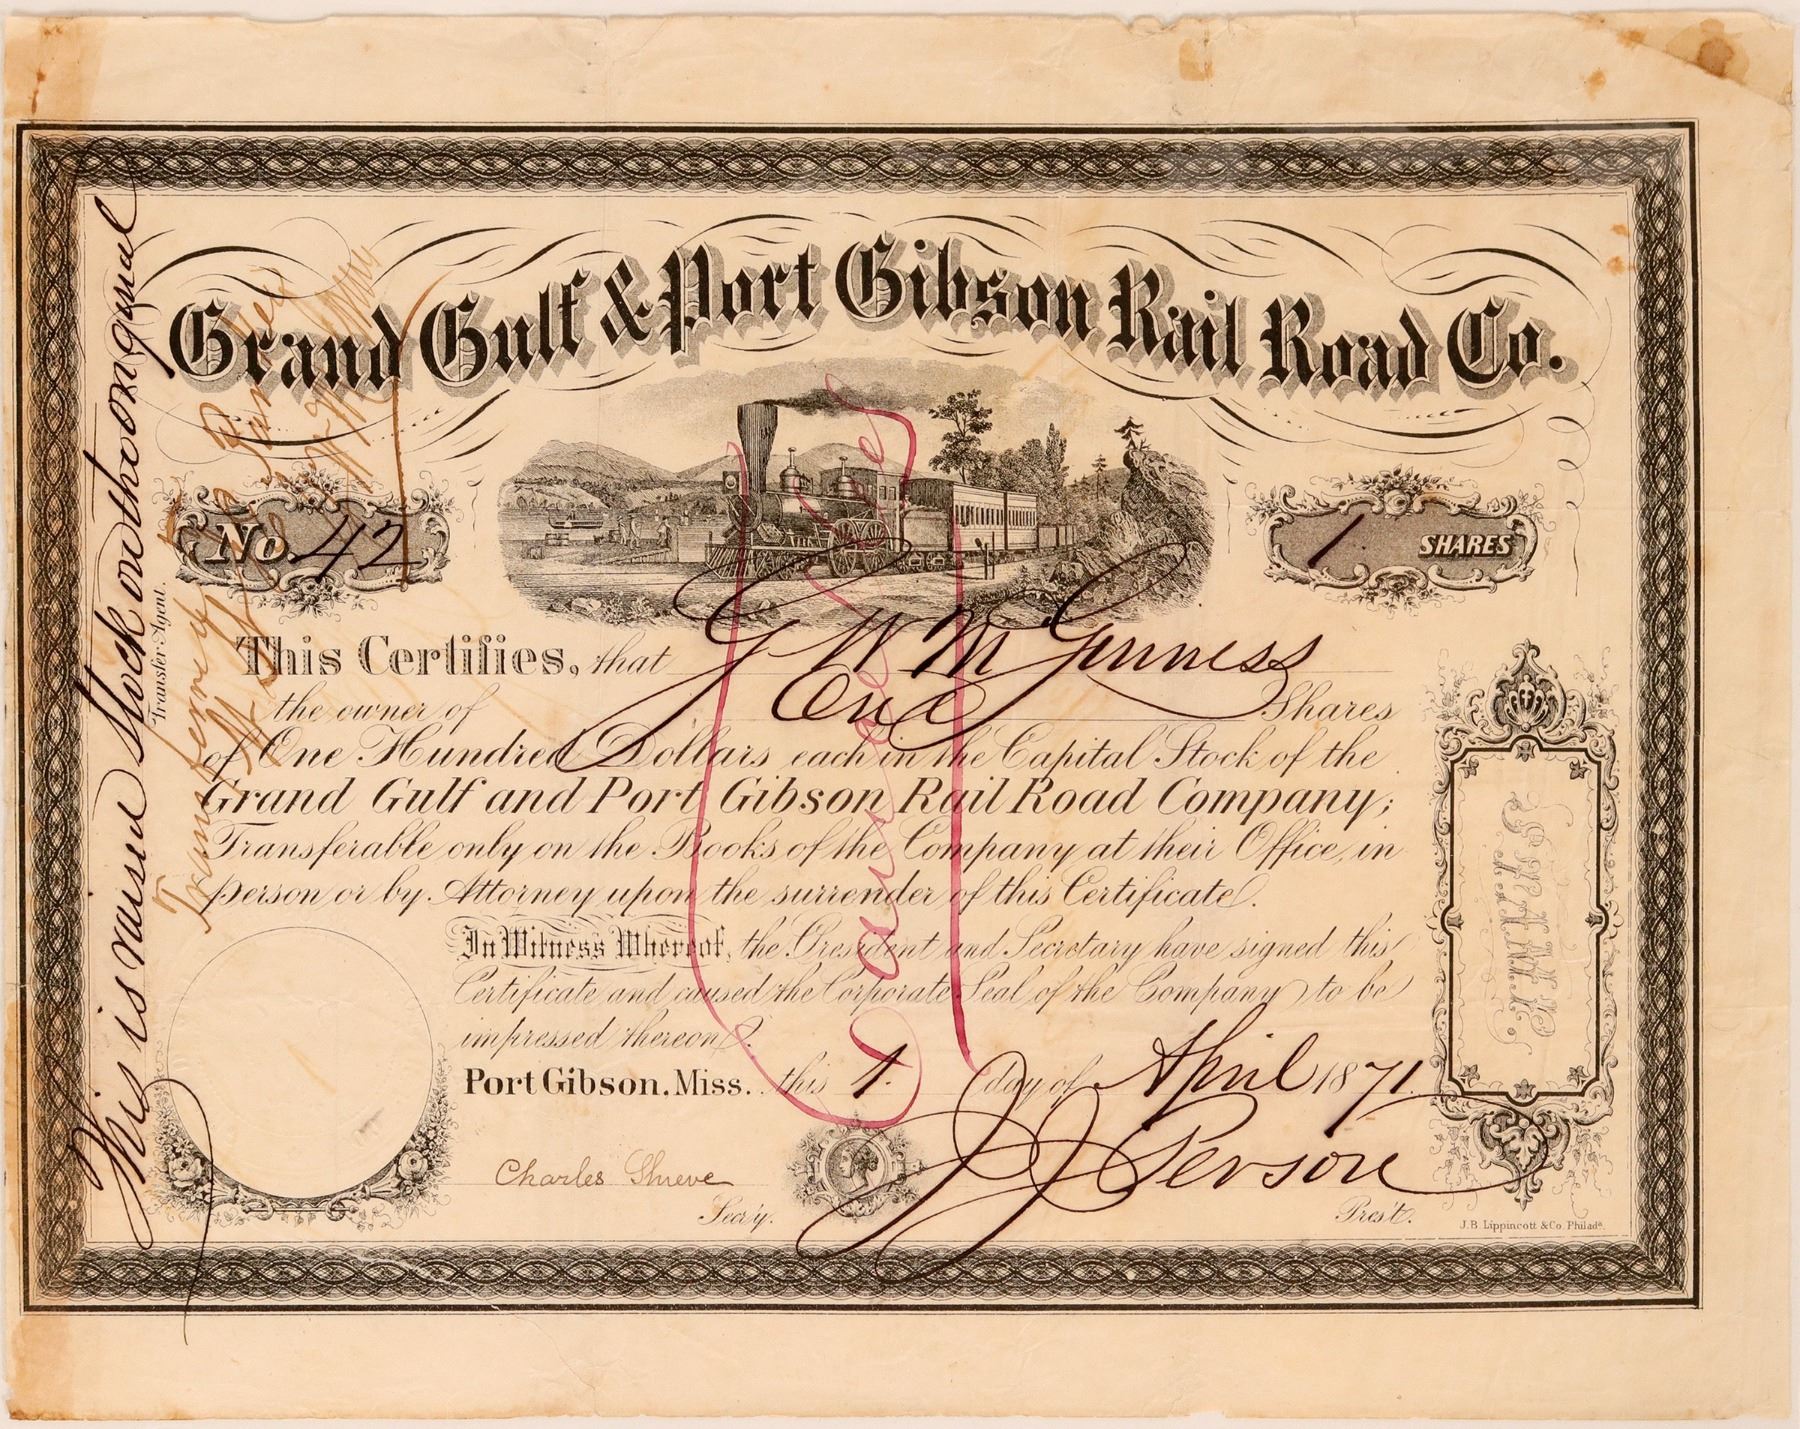 Grand Gulf & Port Gibson Rail Road Co.
No. 42
1 SHARES
This Certifies, that G W McGinness
the owner of One Shares
of One Hundred Dollars each in the Capital Stock of the
Grand Gulf and Port Gibson Rail Road Company;
Transferable only on the Books of the Company at their Office, in
person or by Attorney upon the surrender of this Certificate.
In Witness Whereof, the President and Secretary have signed this
Certificate and caused the Corporate Seal of the Company to be
impressed thereon.
Port Gibson, Miss. this 1. day of April 1871.
Charles Shreve
Secr'y.
J J Person
Pres't.
J.B. Lippincott & Co. Philada.
Transfer Agent.
This is raised Stock on the original
Transfer